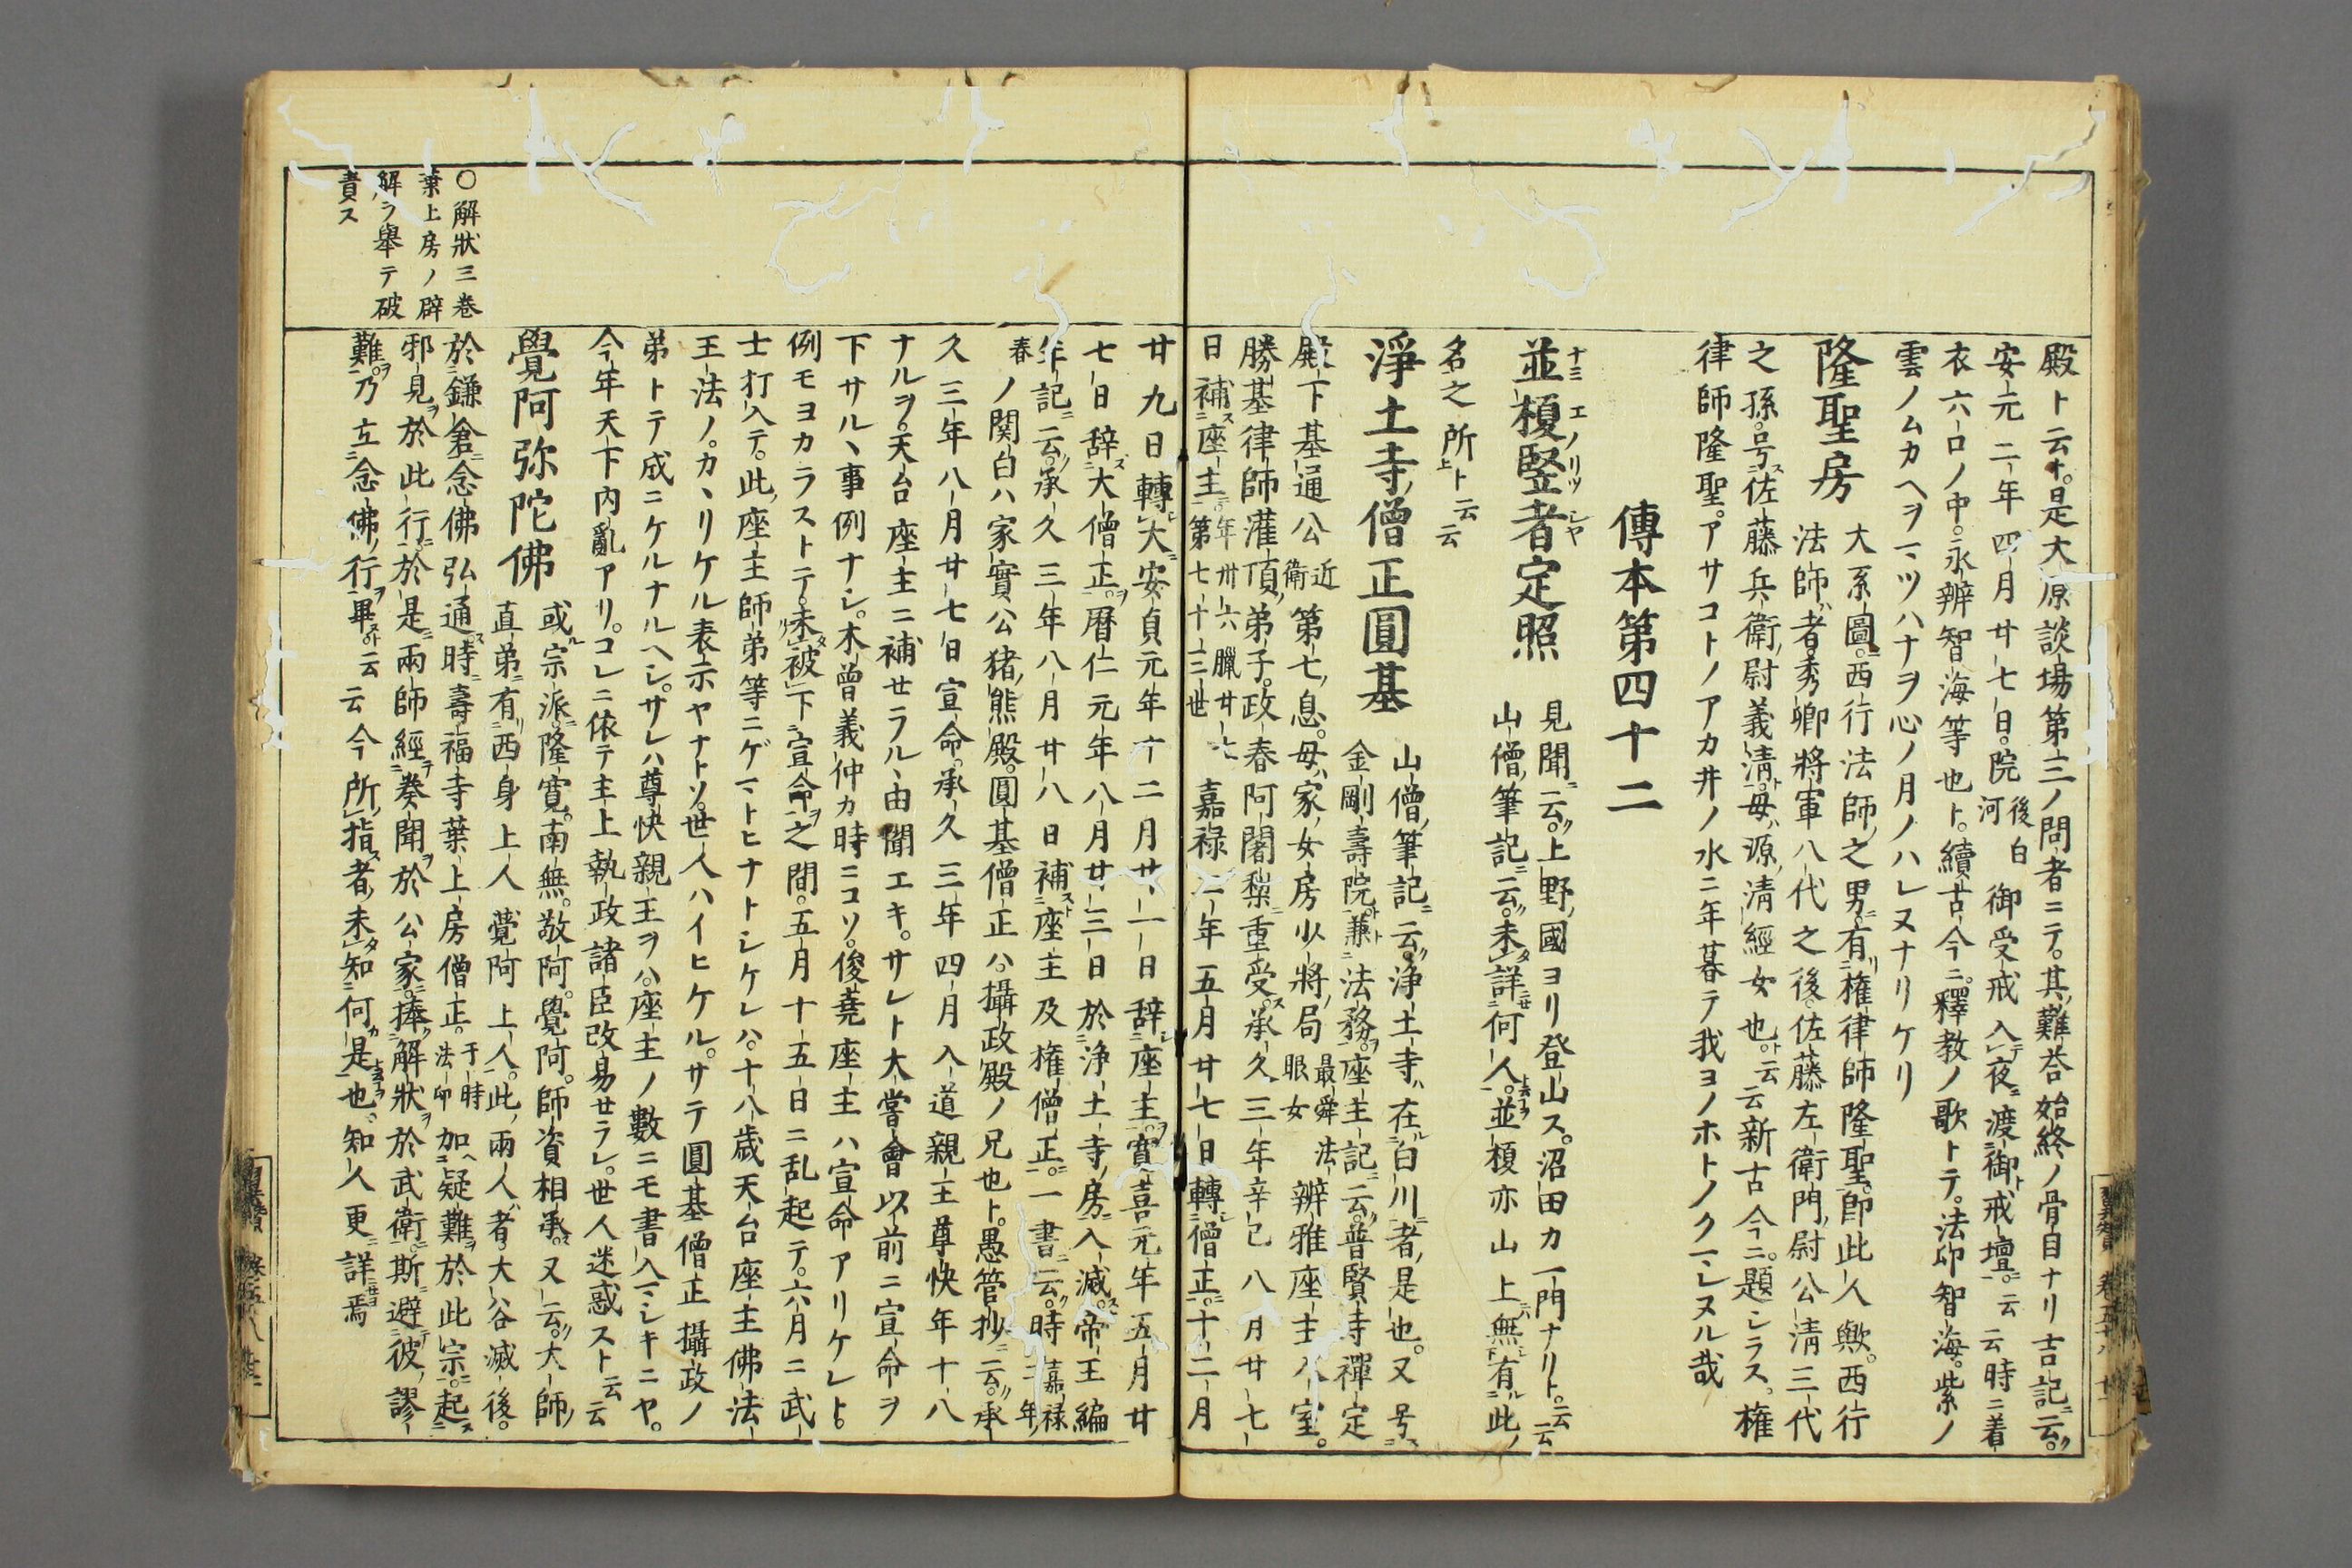 殿ト云ヘリ。是大原談場第三ノ問者ニテ。其難荅始終ノ骨目ナリ吉記ニ云ク。
安元二年四月廿七日。院後白河御受戒入夜渡御戒壇。云云時ニ着
衣六口ノ中。永辨智海等也ト。續古今ニ。釋教ノ歌トテ。法印智海。紫ノ
雲ノムカヘヲマツハナヲ心ノ月ノハレヌナリケリ
隆聖房 大系圖ニ。西行法師之男。有權律師隆聖。卽此人歟。西行
法師者秀卿將軍八代之後。佐藤左衛門尉公淸三代
之孫。号佐藤兵衛尉義淸。母源淸經女也。云云新古今ニ。題シラス。權
律師隆聖。アサコトノアカ井ノ水ニ年暮テ我ヨノホトノクマレヌル哉
傳本第四十二
並榎竪者定照 見聞ニ云ク。上野國ヨリ登山ス。沼田カ一門ナリト。云云
山僧筆記ニ云ク。未詳何人。並榎亦山上無有此ノ
名之所ト云云
淨土寺僧正圓基 山僧筆記ニ云ク。淨土寺ハ在白川者是也。又号
金剛壽院。兼法務。座主記ニ云ク。普賢寺禪定
殿下基通公近衛第七息。母家女房少將局最舜法眼女辨雅座主入室。
勝基律師灌頂弟子。政春阿闍梨重受。承久三年辛巳八月廿七
日補座主。年卅六臘廿七第七十三世嘉禄二年五月廿七日轉僧正。十二月
廿九日轉大。安貞元年十二月廿一日辞座主。寛喜元年五月廿
七日辞大僧正。暦仁元年八月廿三日於淨土寺房入滅。帝王編
年記ニ云ク。承久三年八月廿八日補座主及権僧正。一書ニ云ク。時嘉禄二年
春ノ関白ハ家實公猪熊殿。圓基僧正ハ。攝政殿ノ兄也ト。愚管抄ニ云ク。承
久三年八月廿七日宣命。承久三年四月入道親王尊快年十八
ナルヲ。天台座主ニ補セラル、由聞エキ。サレト大嘗會以前ニ宣命ヲ
下サル、事例ナシ。木曾義仲カ時ニコソ。俊堯座主ハ宣命アリケレト。
例モヨカラストテ。未被下宣命之間。五月十五日ニ乱起テ。六月ニ武
士打入テ。此座主師弟等ニゲマトヒナトシケレハ。十八歳天台座主佛法
王法ノ。カヽリケル表示ヤナトソ。世人ハイヒケル。サテ圓基僧正攝政ノ
弟トテ成ニケルナルヘシ。サレハ尊快親王ヲハ。座主ノ數ニモ書入マシキニヤ。
今年天下內亂アリ。コレニ依テ主上執政諸臣改易セラレ。世人迷惑スト云云
覺阿弥陀佛 或宗派ニ。隆寛。南無。敬阿。覺阿。師資相承。又云ク。大師
直弟ニ有西身上人覺阿上人。此兩人者。大谷滅後。
於鎌倉念佛弘通時。壽福寺葉上房僧正。于時法印加疑難於此宗。起
邪見於此行。於是兩師經奏聞於公家。捧解狀於武衛。斯避彼謬
難。乃立念佛行畢。云云今所指者。未知何是也。知人更詳焉
○解狀三巻
葉上房ノ辟
解ヲ擧テ破
責ス